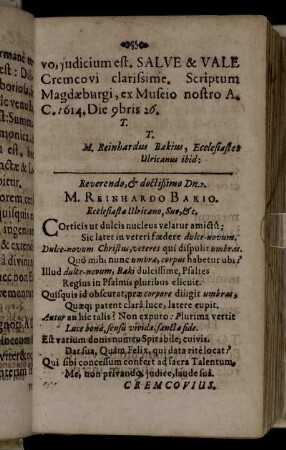 vo, judicium est. SALVE & VALE
Cremcovi clarissime. Scriptum
Magdæburgi, ex Museio nostro A.
C. 1614. Die 9bris 26.
T.
T.
M. Reinhardus Bakius, Ecclesiastes
Ulricanus ibid:
Reverendo, & doctissimo Dn.
M. REINHARDO BAKIO.
Ecclesiastæ Ulricano, Suo, &c.
Corticis ut dulcis nucleus velatur amictu:
Sic later in veteri fœdere dulce-novum.
Dulce-novum Christus, veteres qui dispolit umbras.
Quo mihi nunc umbræ, corpus habetur ubi?
Illud dulce-novum, Baki dulcissime, Psaltes
Regius in Psalmis pluribus elicuit.
Quisquis id obscurat, præ corpore diligit umbras,
Quæq; patent clarâ luce, latere cupit.
Autor an hic talis? Non exputo: Plurima vertit
Luce bonâ, sensû vividâ, sanctâ fide.
Est varium donis numen Spirabile, cuivis
Dat sua, Quàm Felix, qui data ritè locat?
Qui sibi concessum confert ad sacra Talentum,
Me, non privando, judice, laude suâ.
CREMCOVIUS.